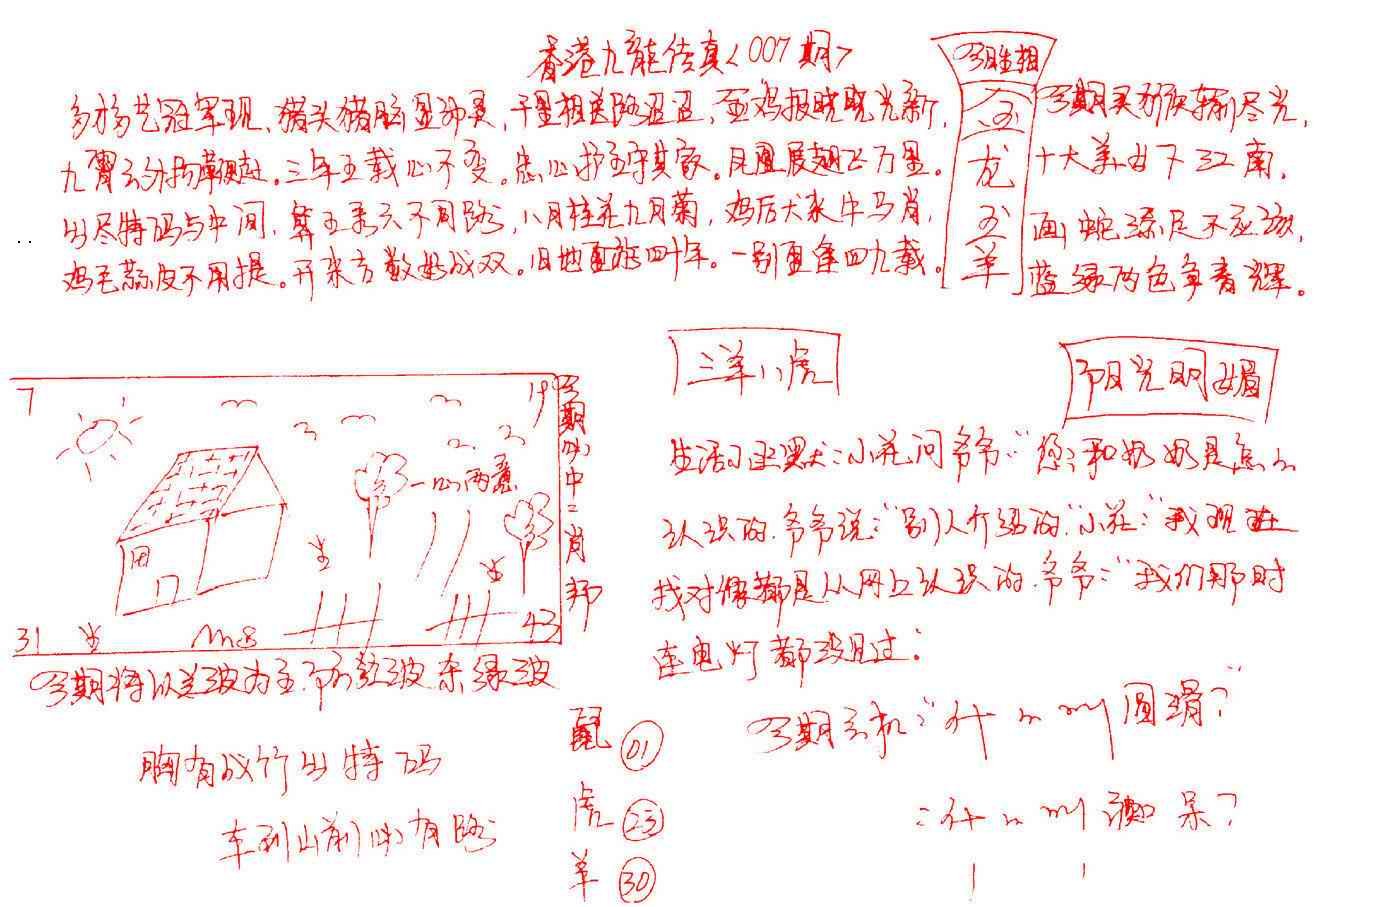 香港九龍传真<007期>
多才多艺冠军现、猪头猪脑显神灵,千里相送路迢迢,金鸡报晓晓光新,
九霄云外指朝赴。三年五载心不变。忠心护主守其家。凤凰展翅飞万里。
出尽特码与中间,算五乘六不同路,八月桂花九月菊,鸡后犬来牛马肖,
鸡毛蒜皮不用提。开来方数始成双。旧地重游四十年。一别重逢四九载。
今期生相
龙
羊
今期买
尽光,
十大美女下江南。
画蛇添足不应该,
蓝绿两色争春辉。
三羊八虎
阳光明媚
7
19
31
43
一心两意
今期必中二肖
生活幽默:小花问爷爷:"您和奶奶是怎么
认识的.爷爷说:"别人介绍的."小花:"我现在
找对像都是从网上认识的.爷爷:"我们那时
连电灯都没见过:
今期将以兰波为主.防红波杂绿波
胸有成竹出特码
车到山前必有路
鼠 01
虎 23
羊 30
今期玄机:"什么 圆滑?"
:什么 呆?